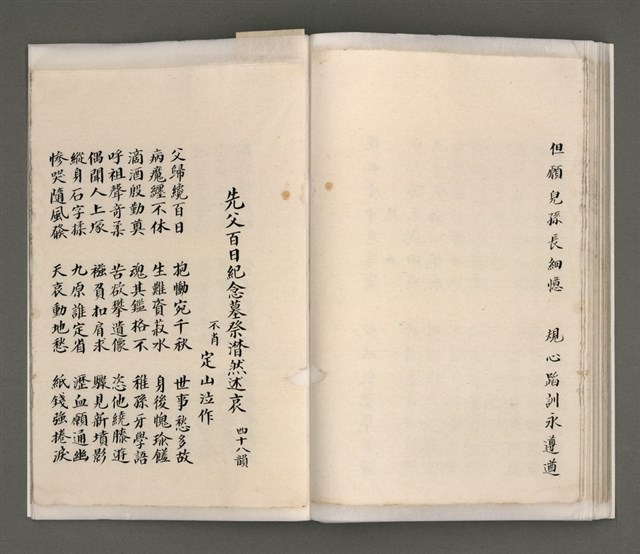 但願兒孫長細憶　規心蹈訓永遵遒
先父百日紀念墓祭潸然述哀 四十八韻
不肖 定山泣作
父歸纔百日　抱慟宛千秋　世事愁多故
病魔纏不休　生難資菽水　身後愧瑜饈
滴酒殷勤奠　魂其鑑格不　稚孫牙學語
呼祖聲奇柔　苦欲攀遺像　恣他繞膝遊
偶聞人上塚　襁負扣肩求　驟見新墳影
縱身石字揉　九原誰定省　瀝血願通幽
慘哭隨風發　天哀動地愁　紙錢強捲淚